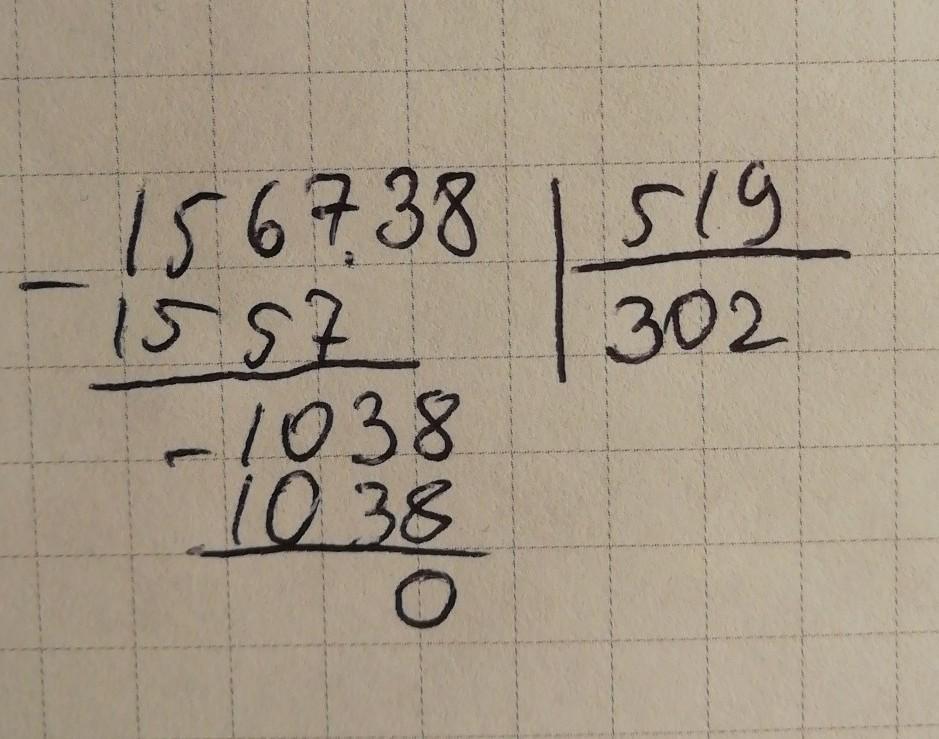 156738 | 519
- 1557 302
- 1038
1038
0